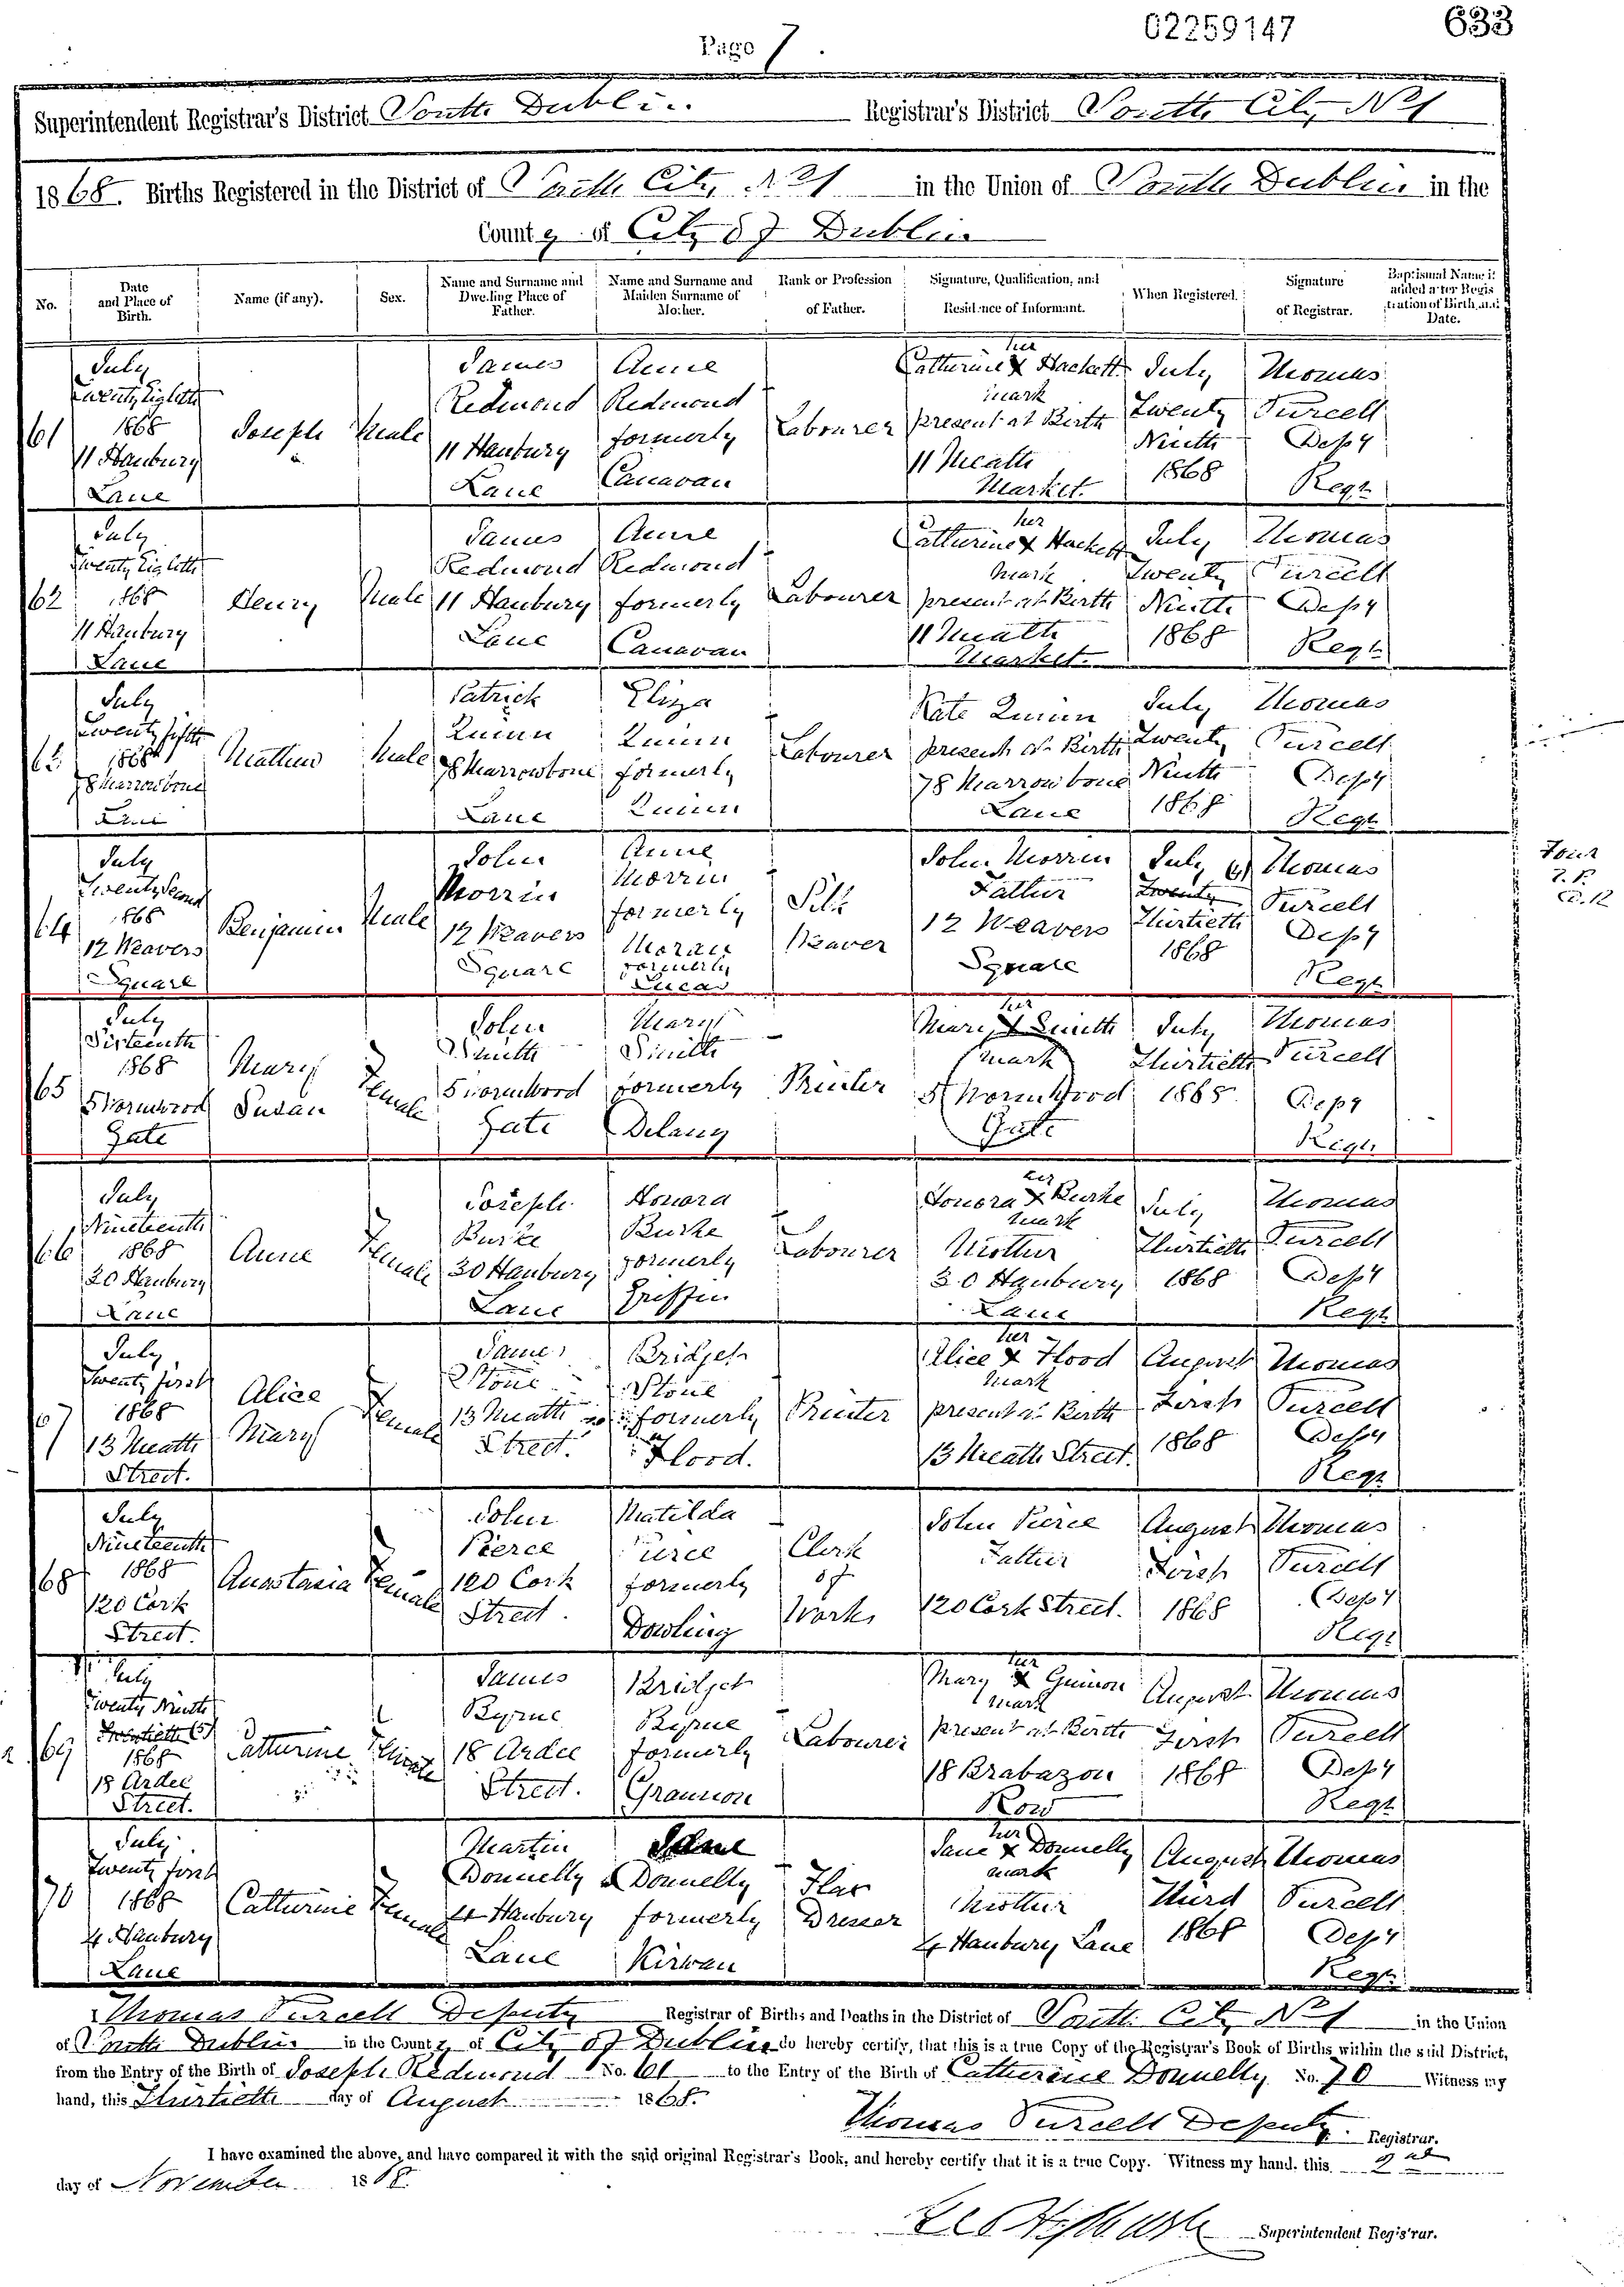 Page 7.
02259147
633
Superintendent Registrar's District South Dublin Registrar's District South City No 1
1868. Births Registered in the District of South City No 1 in the Union of South Dublin in the
County of City of Dublin
No. Date and Place of Birth. Name (if any). Sex. Name and Surname and Dwelling Place of Father. Name and Surname and Maiden Surname of Mother. Rank or Profession of Father. Signature, Qualification, and Residence of Informant. When Registered. Signature of Registrar. Baptismal Name if added after Registration of Birth, and Date.
61 July Twenty Eighth 1868 11 Hanbury Lane Joseph Male James Redmond 11 Hanbury Lane Anne Redmond formerly Canavan Labourer Catherine X Hackett her mark present at Birth 11 Meath Market. July Twenty Ninth 1868 Thomas Purcell Depy Regr
62 July Twenty Eighth 1868 11 Hanbury Lane Henry Male James Redmond 11 Hanbury Lane Anne Redmond formerly Canavan Labourer Catherine X Hackett her mark present at Birth 11 Meath Market. July Twenty Ninth 1868 Thomas Purcell Depy Regr
63 July Twenty fifth 1868 78 Marrowbone Lane Matthew Male Patrick Quinn 78 Marrowbone Lane Eliza Quinn formerly Quinn Labourer Kate Quinn present at Birth 78 Marrowbone Lane July Twenty Ninth 1868 Thomas Purcell Depy Regr
64 July Twenty Second 1868 12 Weavers Square Benjamin Male John Morrin 12 Weavers Square Anne Morrin formerly Moran formerly Lucas Silk Weaver John Morrin Father 12 Weavers Square July Twenty Thirtieth 1868 Thomas Purcell Depy Regr
65 July Sixteenth 1868 5 Wormwood Gate Mary Susan Female John Smith 5 Wormwood Gate Mary Smith formerly Delany Printer Mary X Smith her mark 5 Wormwood Gate July Thirtieth 1868 Thomas Purcell Depy Regr
66 July Nineteenth 1868 30 Hanbury Lane Anne Female Joseph Burke 30 Hanbury Lane Honora Burke formerly Griffin Labourer Honora X Burke her mark Mother 30 Hanbury Lane July Thirtieth 1868 Thomas Purcell Depy Regr
67 July Twenty first 1868 13 Meath Street. Alice Mary Female James Stone 13 Meath Street. Bridget Stone formerly Flood. Printer Alice X Flood her mark present at Birth 13 Meath Street. August First 1868 Thomas Purcell Depy Regr
68 July Nineteenth 1868 120 Cork Street. Anastasia Female John Pierce 120 Cork Street. Matilda Pierce formerly Dowling Clerk of Works John Pierce Father 120 Cork Street. August First 1868 Thomas Purcell Depy Regr
69 July Twenty Ninth 1868 18 Ardee Street. Catherine Female James Byrne 18 Ardee Street. Bridget Byrne formerly Labourer Mary X her mark present at Birth 18 Brabazon Row August First 1868 Thomas Purcell Depy Regr
70 July Twenty first 1868 4 Hanbury Lane Catherine Female Martin Donnelly 4 Hanbury Lane Jane Donnelly formerly Kirwan Flax Dresser Jane X Donnelly her mark Mother 4 Hanbury Lane August Third 1868 Thomas Purcell Depy Regr
Thomas Purcell Deputy Registrar of Births and Deaths in the District of South City No 1 in the Union
of South Dublin in the County of City of Dublin do hereby certify, that this is a true Copy of the Registrar's Book of Births within the said District,
from the Entry of the Birth of Joseph Redmond No. 61 to the Entry of the Birth of Catherine Donnelly No. 70 Witness my
hand, this Thirtieth day of August 1868.
Thomas Purcell Deputy Registrar.
I have examined the above, and have compared it with the said original Registrar's Book, and hereby certify that it is a true Copy. Witness my hand, this 2nd
day of November 1868.
Superintendent Registrar.